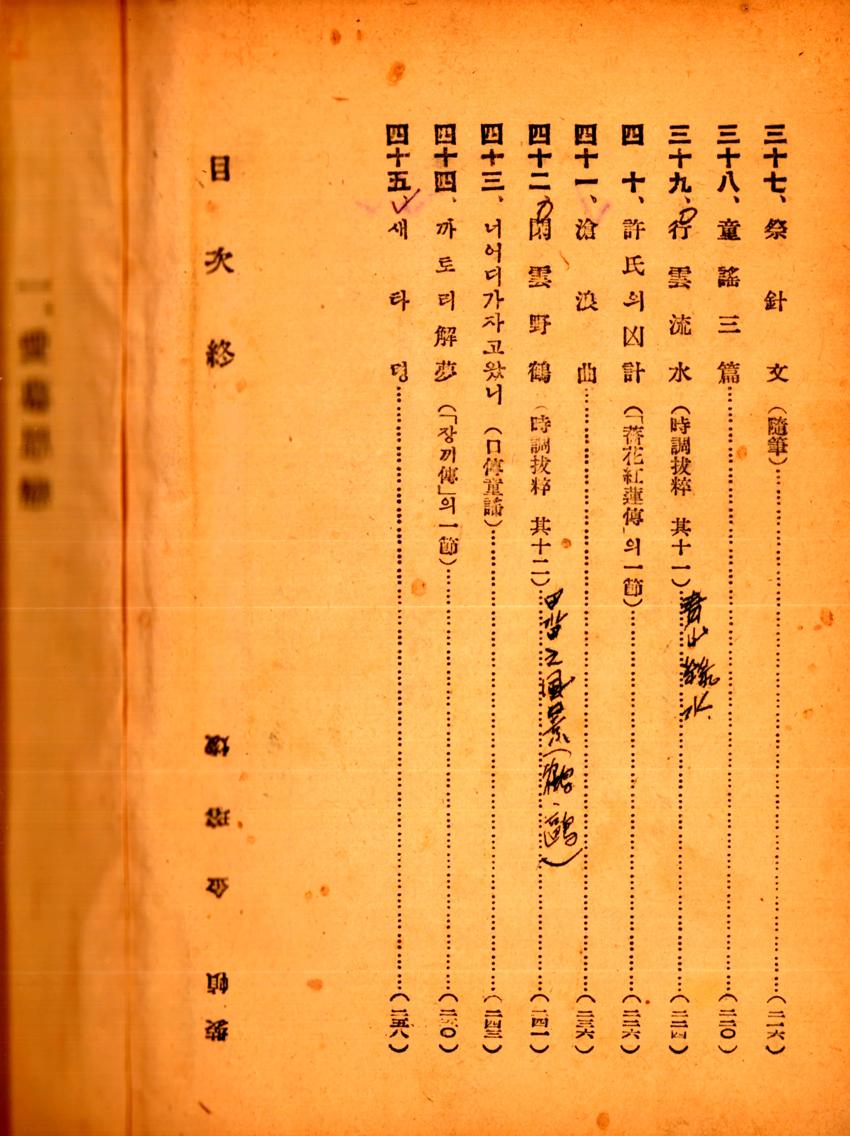 三十七、祭針文(隨筆)……(二一六)
三十八、童謠三篇……(二二〇)
三十九、行雲流水(時調拔粹 其十一)……(二二四)
靑山綠水
四 十、許氏의凶計(「薔花紅蓮傳」의一節)……(二二六)
四十一、滄浪曲……(二三六)
四十二、閑雲野鶴(時調拔粹 其十二)……(二四一)
風景(鶴·鷗)
四十三、너어디가자고왔니(口傳童謠)……(二四三)
四十四、까토리解夢(「장끼傳」의一節)……(二五〇)
四十五、새타령……(二五八)
目次終
裝幀 金瑢